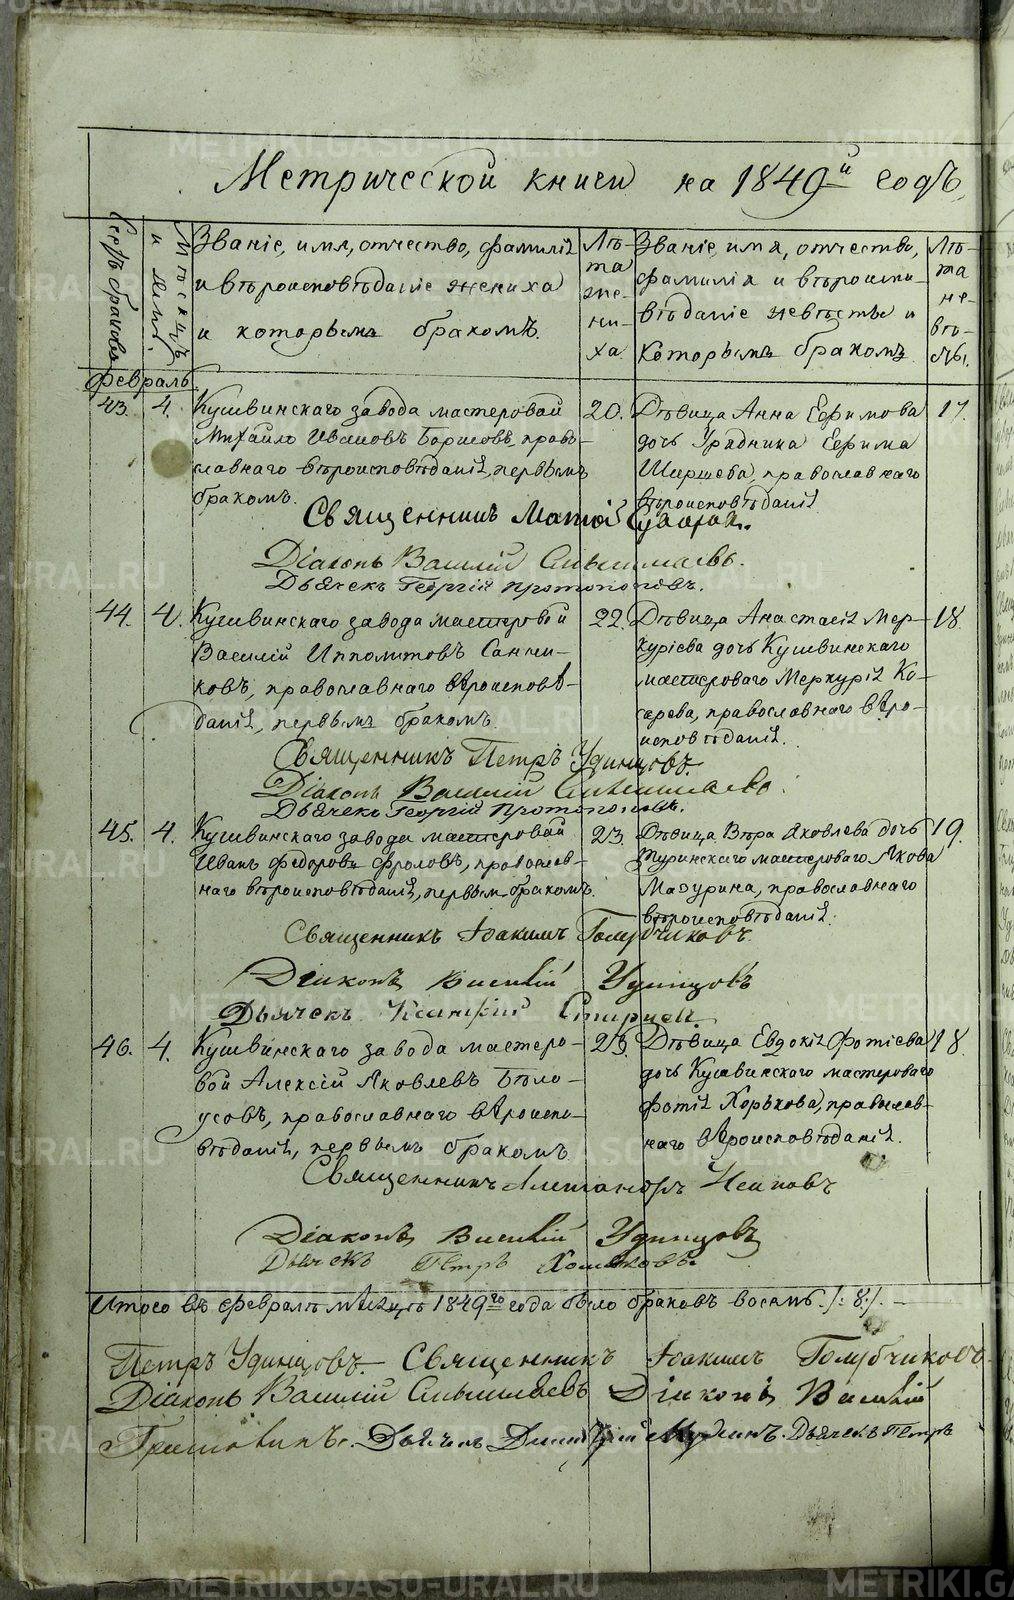 METRIKI.GASO-URAL.RU
Метрической книги на 1849й годъ
Счетъ браковъ
Мѣсяцъ и день.
Званіе, имя, отчество, фамилія
и вѣроисповѣданіе жениха
и которымъ бракомъ.
Лѣта жениха.
Званіе, имя, отчество,
фамилія и вѣроиспо-
вѣданіе невѣсты и
которымъ бракомъ
Лѣта невѣсты.
Февраль
43. 4. Кушвинскаго завода мастеровой
Михайло Ивановъ Борисовъ, право-
славнаго вѣроисповѣданія, первымъ
бракомъ.
20.
Дѣвица Анна Ефимова
дочь Урядника Ефима
Ширшева, православнаго
вѣроисповѣданія
17.
Священникъ
Діаконъ Василій
Дьячекъ Георгій Протопоповъ.
44. 4. Кушвинскаго завода мастеровой
Василій Ипполитовъ Санни-
ковъ, православнаго вѣроисповѣ-
данія, первымъ бракомъ
22.
Дѣвица Анастасія Мер-
куріева дочь Кушвинскаго
мастероваго Меркурія Ко-
сарева, православнаго вѣро-
исповѣданія.
18.
Священникъ Петръ Удинцовъ.
Діаконъ Василій
Дьячекъ Георгій Протопоповъ.
45. 4. Кушвинскаго завода мастеровой
Иванъ Федоровъ Фроловъ, православ-
наго вѣроисповѣданія, первымъ бракомъ.
23.
Дѣвица Вѣра Яковлева дочь
Туринскаго мастероваго Якова
Мазурина, православнаго
вѣроисповѣданія.
19.
Священникъ Іоакимъ Голубчиковъ.
Діаконъ Василій Удинцовъ
Дьячекъ
46. 4. Кушвинскаго завода мастеро-
вой Алексій Яковлевъ Бѣло-
усовъ, православнаго вѣроиспо-
вѣданія, первымъ бракомъ
23.
Дѣвица Евдокія Фотіева
дочь Кушвинскаго мастероваго
Фотія Хорькова, православ-
наго вѣроисповѣданія.
18.
Священникъ Александръ
Діаконъ Василій Удинцовъ
Дьячекъ Петръ Хомяковъ.
Итого въ Февралѣ мѣсяцѣ 1849го года было браковъ восемь ./:8:/.
Петръ Удинцовъ. Священникъ Іоакимъ Голубчиковъ.
Діаконъ Василій Діаконъ Василій
Дьячекъ Дьячекъ Петръ